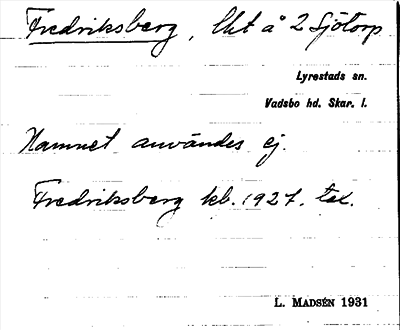 Fredriksberg, lht å 2 Sjötorp
Lyrestads sn.
Vadsbo hd. Skar. l.
Namnet användes ej.
Fredriksberg kb. 1927. tax.
L. Madsén 1931